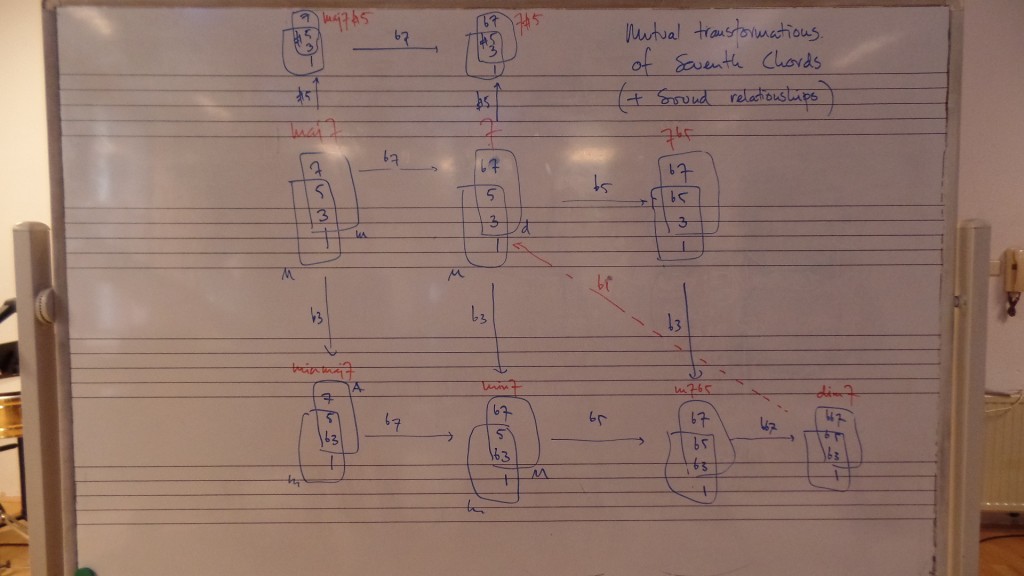 Mutual transformations
of Seventh Chords
(+ Sound relationships)
maj7#5
7
#5
3
1
b7
7#5
b7
#5
3
1
#5
#5
maj7
7
5
3
1
m
M
b7
7
b7
5
3
1
d
M
b5
7b5
b7
b5
3
1
b3
b3
b3
b1
minmaj7
7
5
b3
1
A
m
b7
min7
b7
5
b3
1
M
m
b5
m7b5
b7
b5
b3
1
b7
dim7
bb7
b5
b3
1